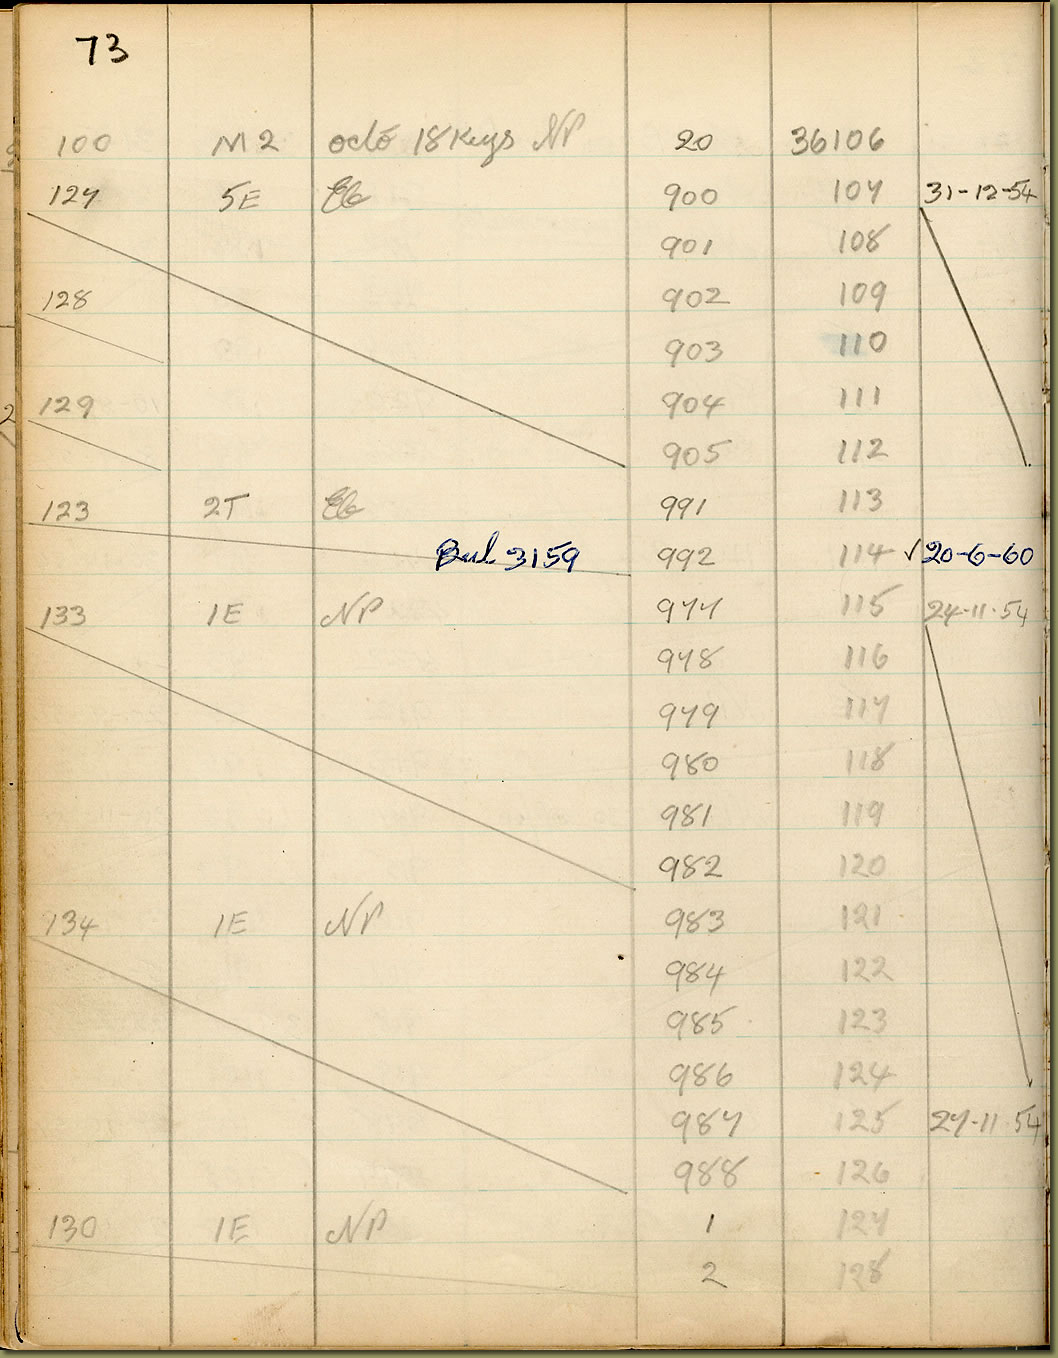 73
100 M2 octo 18 Keys NP 20 36106
127 5E Eb 900 107 31-12-54
901 108
128 902 109
903 110
129 904 111
905 112
123 2T Eb 991 113
Bul 3159 992 114 ✓ 20-6-60
133 1E NP 977 115 24-11-54
978 116
979 117
980 118
981 119
982 120
134 1E NP 983 121
984 122
985 123
986 124
987 125 27-11-54
988 126
130 1E NP 1 127
2 128